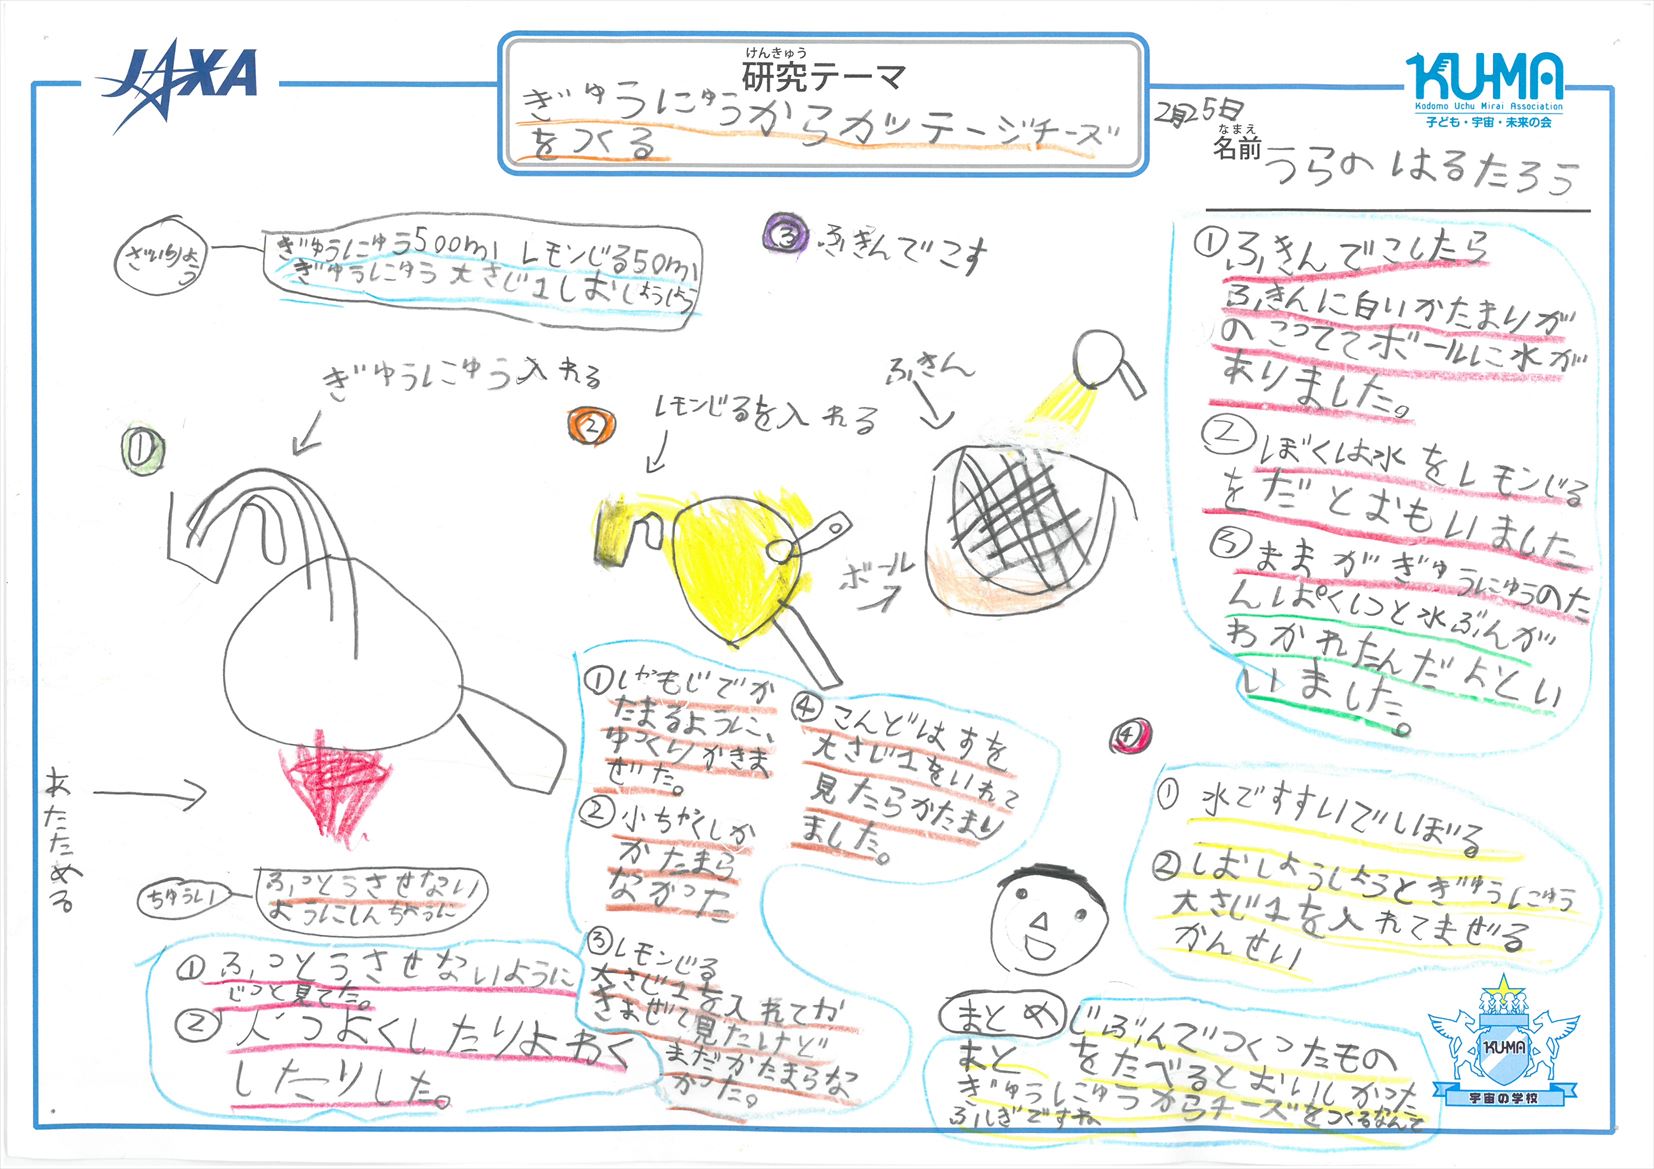 JAXA
けんきゅう
研究テーマ
ぎゅうにゅうからカッテージチーズ
をつくる
KU-MA
Kodomo Uchu Mirai Association
子ども・宇宙・未来の会
2月25日
なまえ
名前
うらの はるたろう
ざいりょう
ぎゅうにゅう500ml レモンじる50ml
ぎゅうにゅう 大さじ1 しおしょうしょう
①
ぎゅうにゅう入れる
あたためる
ちゅうい
ふっとうさせない
ようにしんちょうに
①ふっとうさせないように
じっと見てた。
②
つよくしたりよわく
したりした。
②
レモンじるを入れる
①しゃもじでか
たまるように、
ゆっくりかきま
ぜた。
②小ちゃくしか
かたまら
なかった
③レモンじる
大さじ1を入れてか
きまぜて見たけど
まだかたまらな
かった。
④こんどはすを
大さじ1をいれて
見たらかたまり
ました。
③ふきんでこす
ふきん
ボール
①ふきんでこしたら
ふきんに白いかたまりが
のこっててボールに水が
ありました。
②ぼくは水をレモンじる
をだとおもいました
③ままがぎゅうにゅうのた
んぱくしつと水ぶんが
わかれたんだよとい
いました。
④
①水ですすいでしぼる
②しおしょうしょうとぎゅうにゅう
大さじ1を入れてまぜる
かんせい
まとめ
じぶんでつくったもの
をたべるとおいしかった
あと
ぎゅうにゅうからチーズをつくるなんて
ふしぎですね
KUMA
宇宙の学校